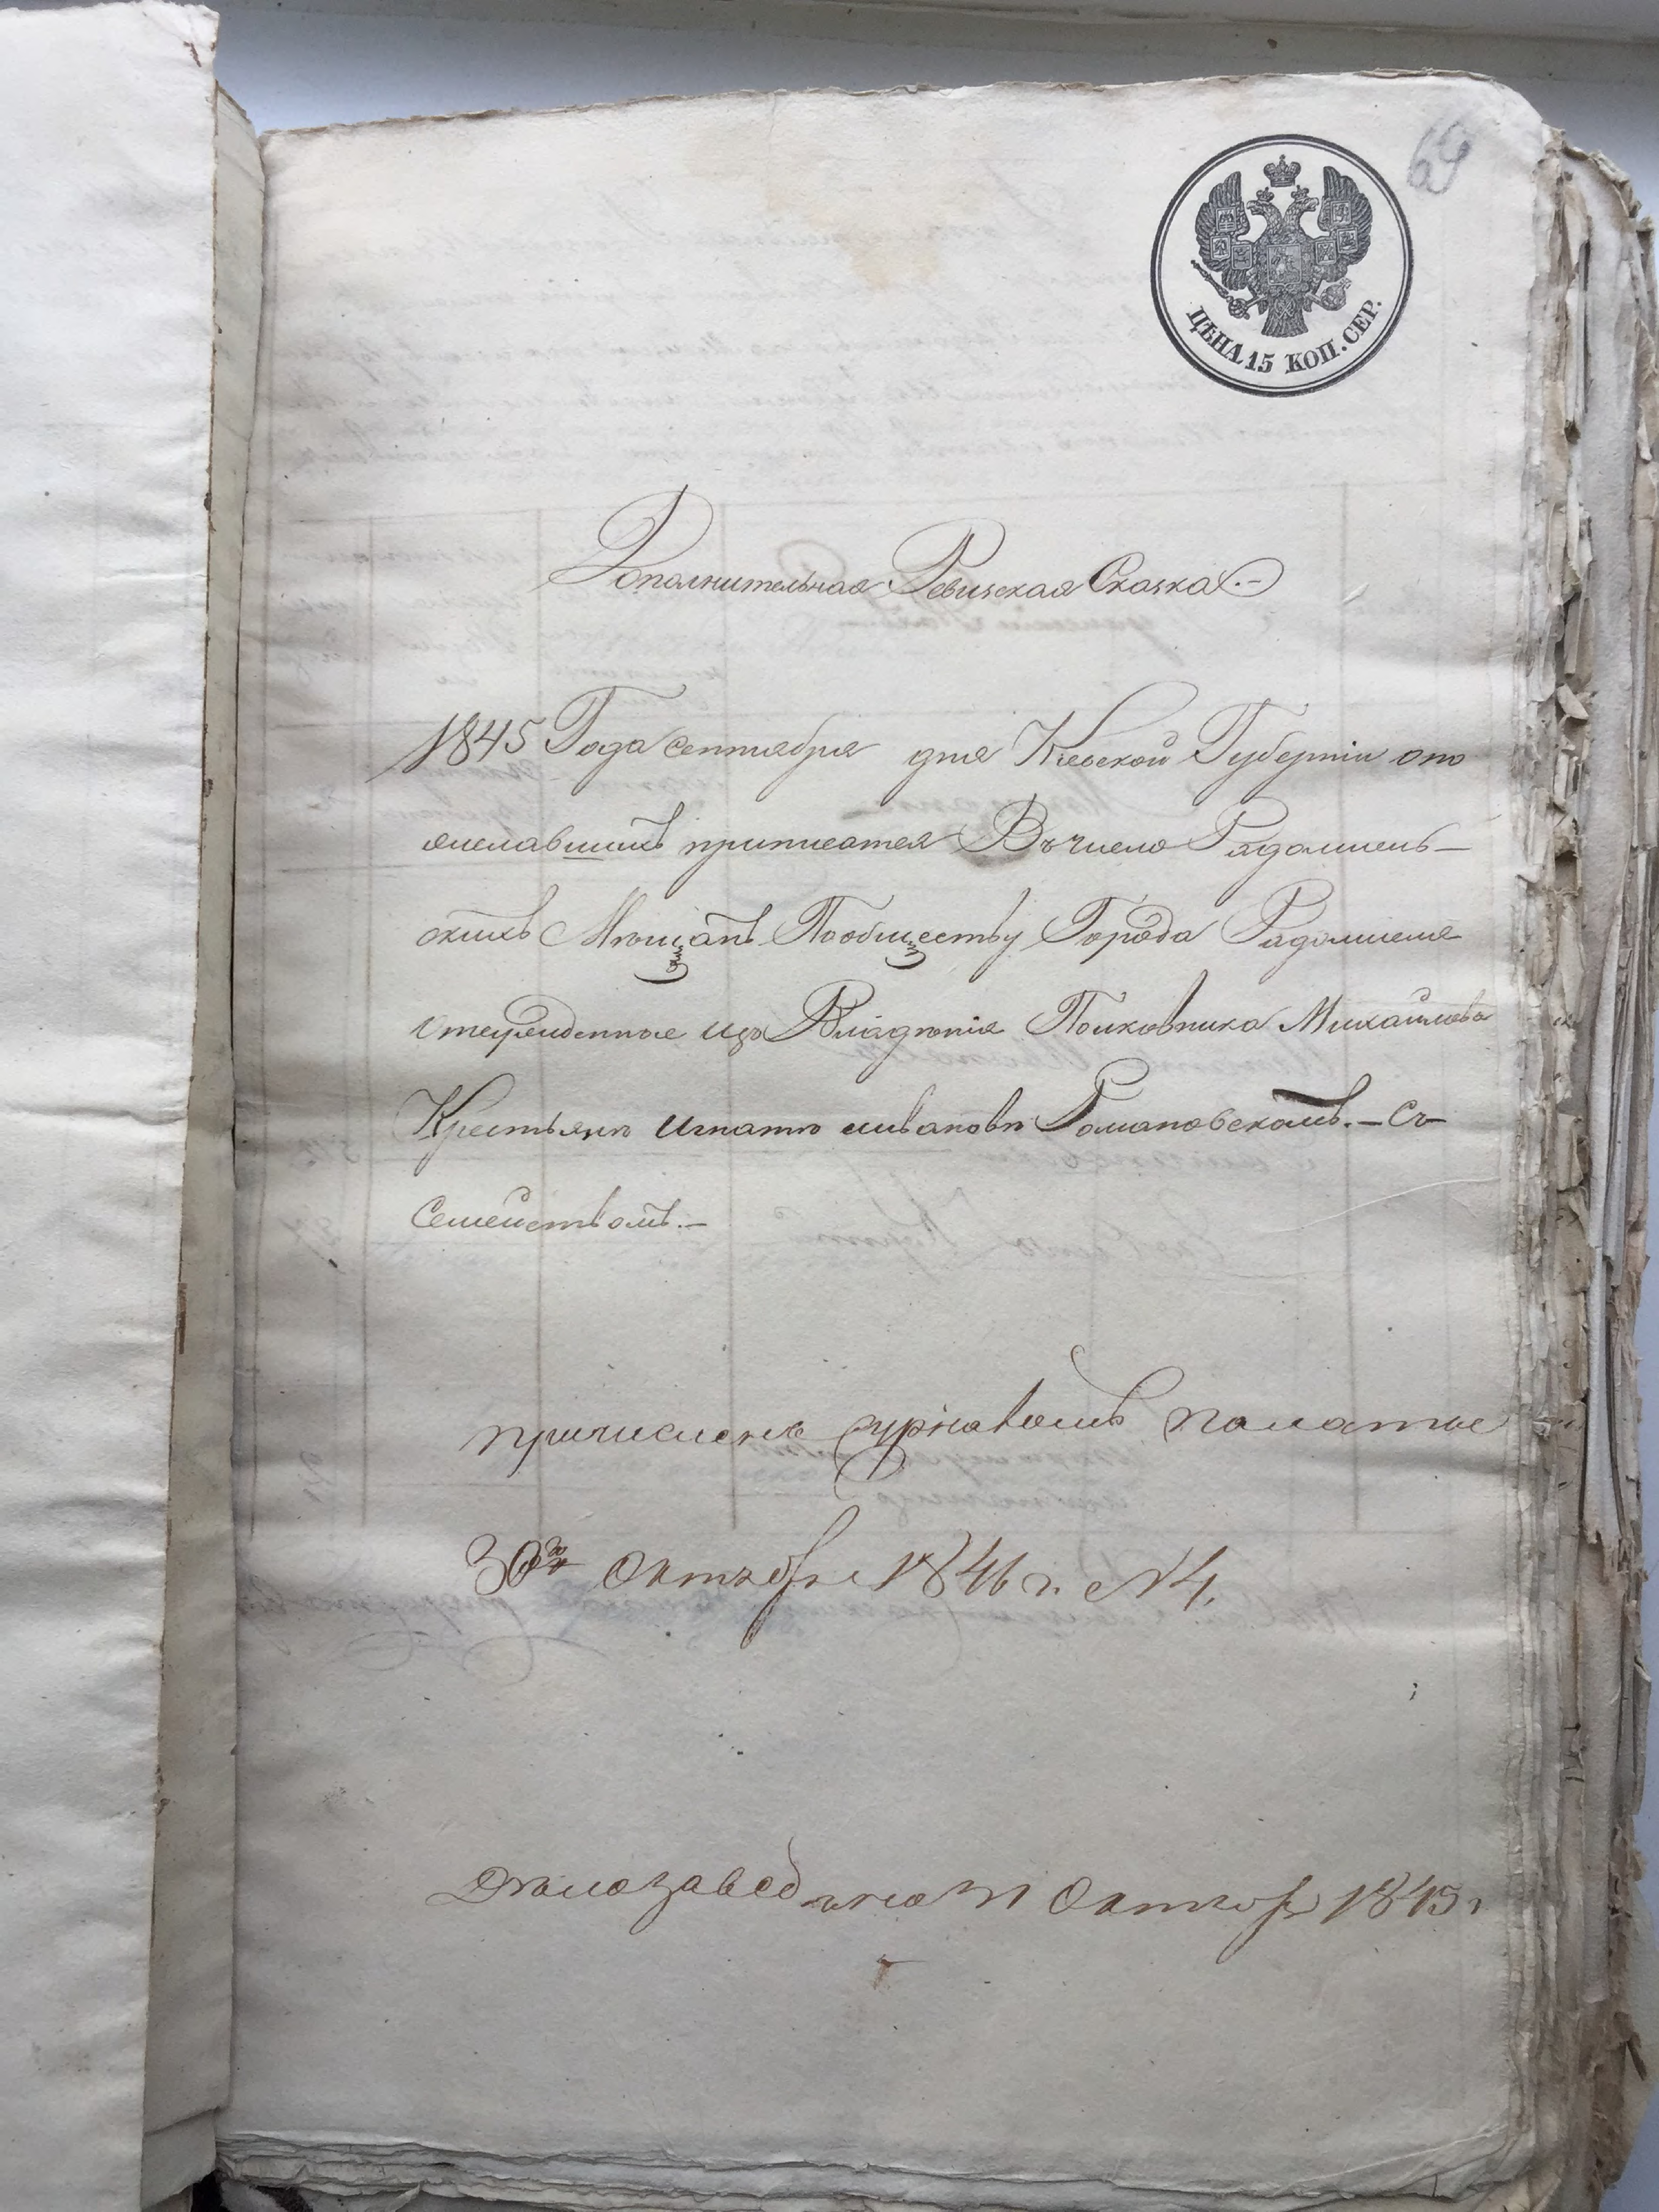 69
ЦѢНА 15 КОП. СЕР.
Дополнительная Ревизская Сказка.–
1845 Года Сентября дня Кіевской Губерніи ото
желавшихъ приписатся Въ число Радомысль–
скихъ Мѣщанъ Пообществу Города Радомысля
изъ Владѣнія Полковника Михайлова
Крестьянъ Игнатъ Ивановъ Романовскомъ.– Съ
Семействомъ.–
причислены журналомъ палаты
30го Октября 1846 г. N 4.
Дѣло заведено 31 Октябр 1845 г